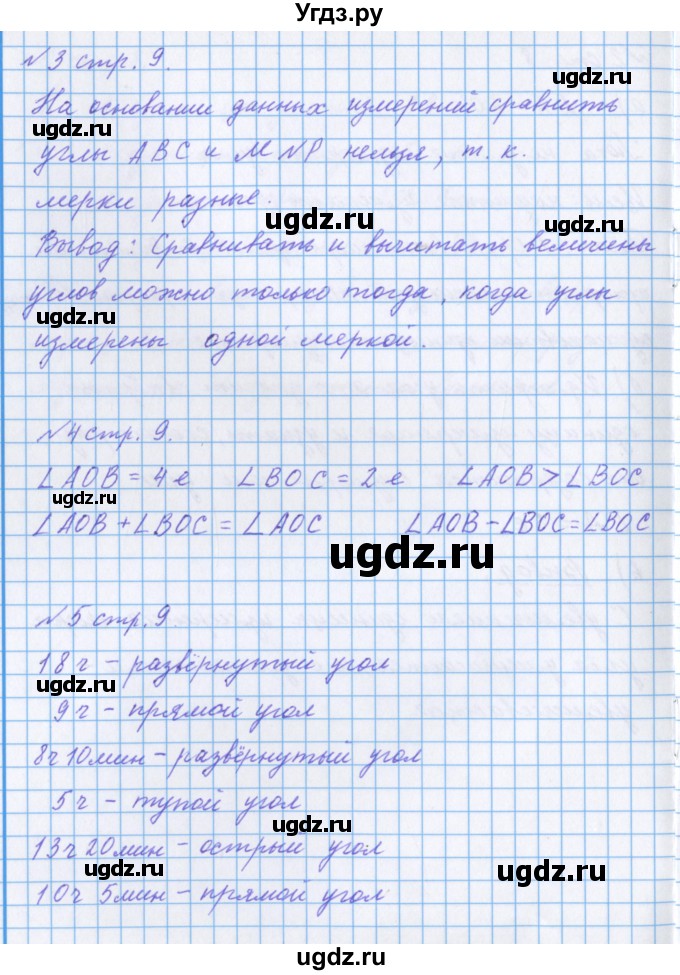 Угдз.ру
№3 стр. 9.
На основании данных измерений сравнить
ugdz.ru
углы ABC и MNP нельзя, т. к.
мерки разные.
ugdz.ru
ugdz.ru
Вывод: Сравнивать и вычитать величины
углов можно только тогда, когда углы
ugdz.ru
измерены одной меркой.
ugdz.ru
№4 стр. 9.
∠AOB = 4 е ∠BOC = 2 е ∠AOB > ∠BOC
ugdz.ru
∠AOB + ∠BOC = ∠AOC ∠AOB - ∠BOC = ∠BOC
ugdz.ru
№5 стр. 9
18 ч - развёрнутый угол
ugdz.ru
9 ч - прямой угол
ugdz.ru
8ч 10мин - развёрнутый угол
5 ч - тупой угол
ugdz.ru
13ч 20мин - острый угол
ugdz.ru
ugdz.ru
10ч 5мин - прямой угол
ugdz.ru